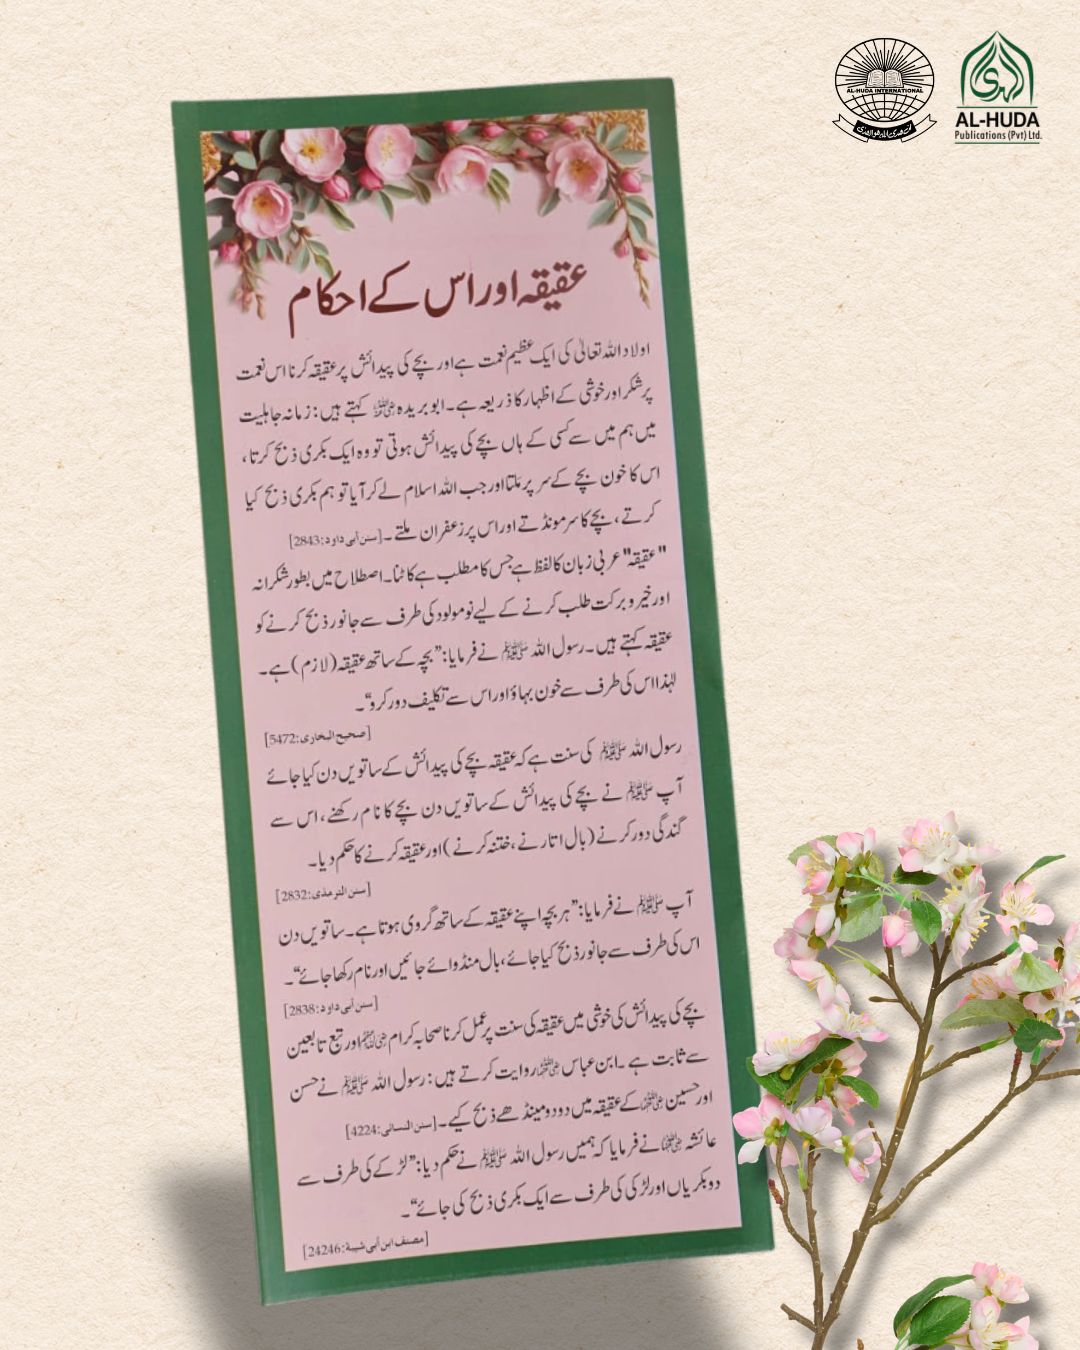 AL-HUDA INTERNATIONAL
AL-HUDA
Publications (Pvt) Ltd.
عقیقہ اور اس کے احکام
اولاد اللہ تعالیٰ کی ایک عظیم نعمت ہے اور بچے کی پیدائش پر عقیقہ کرنا اس نعمت
پر شکر اور خوشی کے اظہار کا ذریعہ ہے۔ ابو بریدہ ؓ کہتے ہیں: زمانہ جاہلیت
میں ہم میں سے کسی کے ہاں بچے کی پیدائش ہوتی تو وہ ایک بکری ذبح کرتا،
اس کا خون بچے کے سر پر ملتا اور جب اللہ اسلام لے کر آیا تو ہم بکری ذبح کیا
کرتے، بچے کا سر مونڈتے اور اس پر زعفران ملتے۔ [سنن أبی داود:2843]
"عقیقہ" عربی زبان کا لفظ ہے جس کا مطلب ہے کاٹنا۔ اصطلاح میں بطور شکرانہ
اور خیر و برکت طلب کرنے کے لیے نومولود کی طرف سے جانور ذبح کرنے کو
عقیقہ کہتے ہیں۔ رسول اللہ ﷺ نے فرمایا: ”بچہ کے ساتھ عقیقہ (لازم) ہے۔
لہٰذا اس کی طرف سے خون بہاؤ اور اس سے تکلیف دور کرو“۔
[صحیح البخاری:5472]
رسول اللہ ﷺ کی سنت ہے کہ عقیقہ بچے کی پیدائش کے ساتویں دن کیا جائے
آپ ﷺ نے بچے کی پیدائش کے ساتویں دن بچے کا نام رکھنے، اس سے
گندگی دور کرنے (بال اتارنے، ختنہ کرنے) اور عقیقہ کرنے کا حکم دیا۔
[سنن الترمذی:2832]
آپ ﷺ نے فرمایا: ”ہر بچہ اپنے عقیقہ کے ساتھ گروی ہوتا ہے۔ ساتویں دن
اس کی طرف سے جانور ذبح کیا جائے، بال منڈوائے جائیں اور نام رکھا جائے“۔
[سنن أبی داود:2838]
بچے کی پیدائش کی خوشی میں عقیقہ کی سنت پر عمل کرنا صحابہ کرام ؓ اور تبع تابعین
سے ثابت ہے۔ ابن عباس ؓ روایت کرتے ہیں: رسول اللہ ﷺ نے حسن
اور حسین ؓ کے عقیقہ میں دو دو مینڈھے ذبح کیے۔ [سنن النسائی:4224]
عائشہ ؓ نے فرمایا کہ ہمیں رسول اللہ ﷺ نے حکم دیا: ”لڑکے کی طرف سے
دو بکریاں اور لڑکی کی طرف سے ایک بکری ذبح کی جائے“۔
[مصنف ابن أبی شیبة:24246]